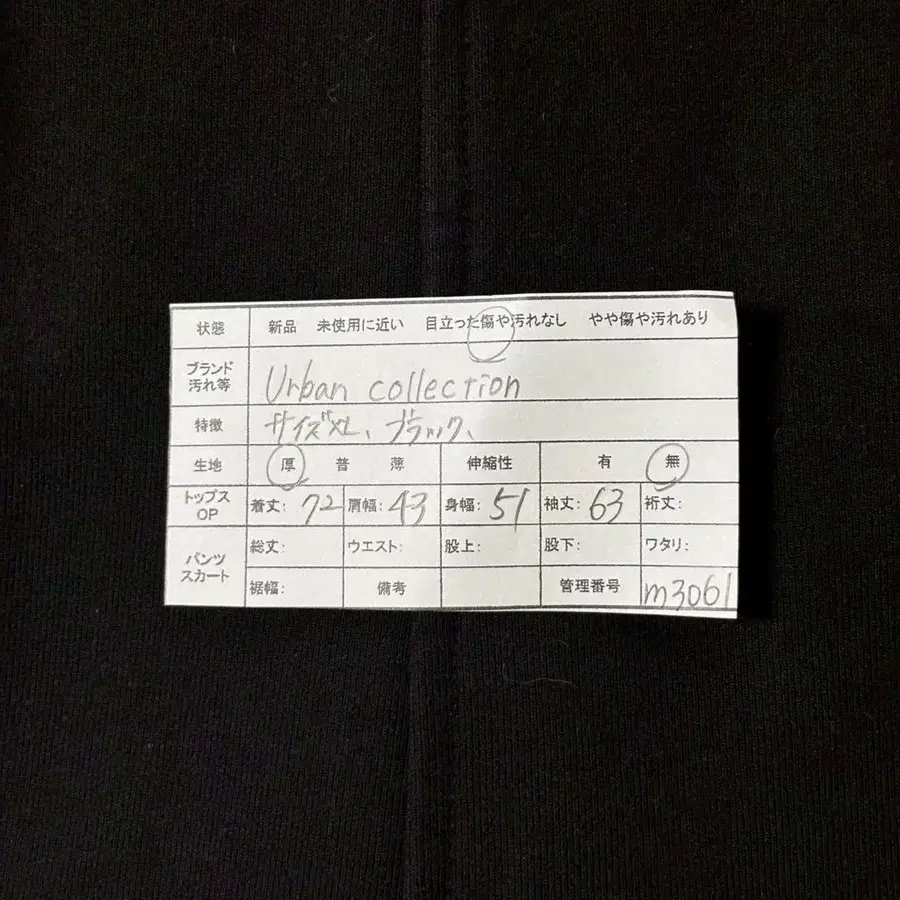 状態 新品 未使用に近い 目立った傷や汚れなし やや傷や汚れあり
ブランド
汚れ等 Urban collection
特徴 サイズXL、ブラック、
生地 厚 普 薄 伸縮性 有 無
トップス
OP 着丈: 72 肩幅: 43 身幅: 51 袖丈: 63 裄丈:
パンツ
スカート 総丈: ウエスト: 股上: 股下: ワタリ:
裾幅: 備考 管理番号 m3061